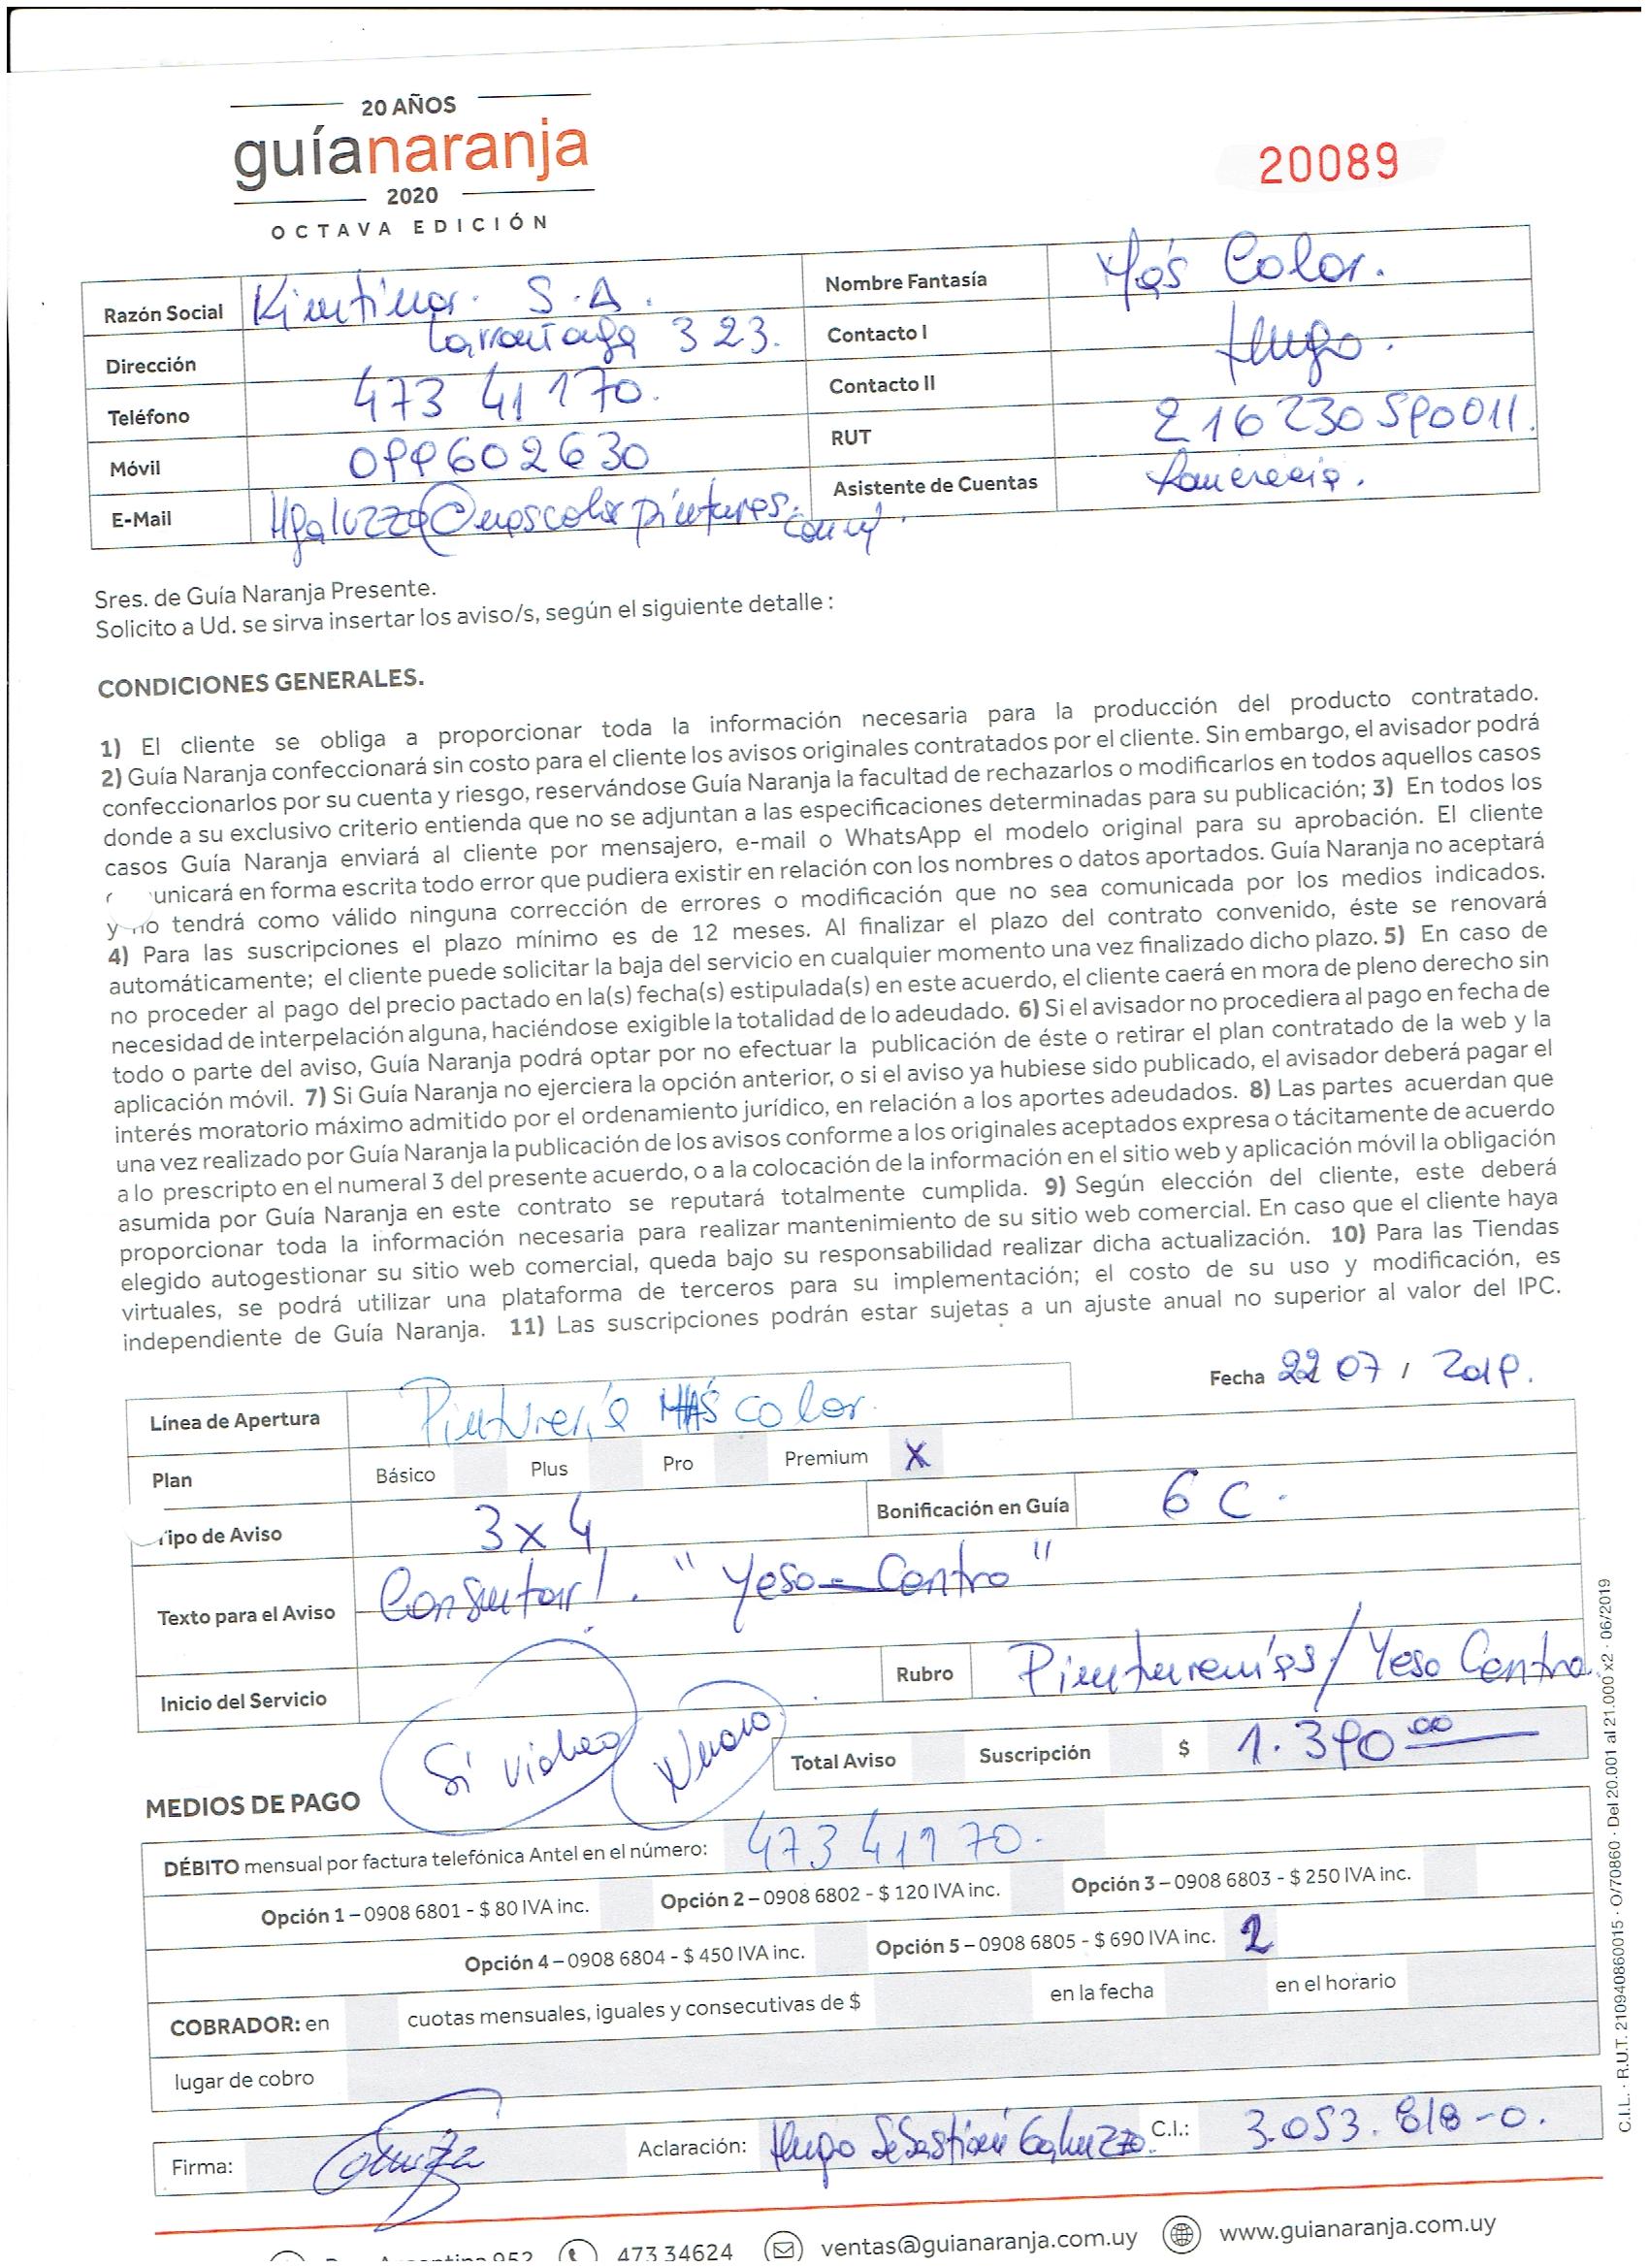 20 AÑOS
guíanaranja
2020
OCTAVA EDICIÓN
20089
Razón Social Kintinor. S.A. Nombre Fantasía Más Color.
Dirección Larrañaga 323. Contacto I Hugo.
Teléfono 473 41 170. Contacto II
Móvil 099602630 RUT 216230590011.
E-Mail Hgaluzzo@mascolorpinturas.com.uy. Asistente de Cuentas
Sres. de Guía Naranja Presente.
Solicito a Ud. se sirva insertar los aviso/s, según el siguiente detalle :
CONDICIONES GENERALES.
1) El cliente se obliga a proporcionar toda la información necesaria para la producción del producto contratado.
2) Guía Naranja confeccionará sin costo para el cliente los avisos originales contratados por el cliente. Sin embargo, el avisador podrá
confeccionarlos por su cuenta y riesgo, reservándose Guía Naranja la facultad de rechazarlos o modificarlos en todos aquellos casos
donde a su exclusivo criterio entienda que no se adjuntan a las especificaciones determinadas para su publicación; 3) En todos los
casos Guía Naranja enviará al cliente por mensajero, e-mail o WhatsApp el modelo original para su aprobación. El cliente
unicará en forma escrita todo error que pudiera existir en relación con los nombres o datos aportados. Guía Naranja no aceptará
y no tendrá como válido ninguna corrección de errores o modificación que no sea comunicada por los medios indicados.
4) Para las suscripciones el plazo mínimo es de 12 meses. Al finalizar el plazo del contrato convenido, éste se renovará
automáticamente; el cliente puede solicitar la baja del servicio en cualquier momento una vez finalizado dicho plazo. 5) En caso de
no proceder al pago del precio pactado en la(s) fecha(s) estipulada(s) en este acuerdo, el cliente caerá en mora de pleno derecho sin
necesidad de interpelación alguna, haciéndose exigible la totalidad de lo adeudado. 6) Si el avisador no procediera al pago en fecha de
todo o parte del aviso, Guía Naranja podrá optar por no efectuar la publicación de éste o retirar el plan contratado de la web y la
aplicación móvil. 7) Si Guía Naranja no ejerciera la opción anterior, o si el aviso ya hubiese sido publicado, el avisador deberá pagar el
interés moratorio máximo admitido por el ordenamiento jurídico, en relación a los aportes adeudados. 8) Las partes acuerdan que
una vez realizado por Guía Naranja la publicación de los avisos conforme a los originales aceptados expresa o tácitamente de acuerdo
a lo prescripto en el numeral 3 del presente acuerdo, o a la colocación de la información en el sitio web y aplicación móvil la obligación
asumida por Guía Naranja en este contrato se reputará totalmente cumplida. 9) Según elección del cliente, este deberá
proporcionar toda la información necesaria para realizar mantenimiento de su sitio web comercial. En caso que el cliente haya
elegido autogestionar su sitio web comercial, queda bajo su responsabilidad realizar dicha actualización. 10) Para las Tiendas
virtuales, se podrá utilizar una plataforma de terceros para su implementación; el costo de su uso y modificación, es
independiente de Guía Naranja. 11) Las suscripciones podrán estar sujetas a un ajuste anual no superior al valor del IPC.
Fecha 22 07 / 2019.
Línea de Apertura Pinturería MÁS color.
Plan Básico Plus Pro Premium X
Tipo de Aviso 3x4 Bonificación en Guía 6 C.
Texto para el Aviso Consultar!. "Yeso-Centro"
Inicio del Servicio Rubro Pinturerías/Yeso Centro.
Si video
Total Aviso Suscripción $ 1.390 00
MEDIOS DE PAGO
DÉBITO mensual por factura telefónica Antel en el número: 473 41170.
Opción 1 – 0908 6801 - $ 80 IVA inc. Opción 2 – 0908 6802 - $ 120 IVA inc. Opción 3 – 0908 6803 - $ 250 IVA inc.
Opción 4 – 0908 6804 - $ 450 IVA inc. Opción 5 – 0908 6805 - $ 690 IVA inc. 2
COBRADOR: en cuotas mensuales, iguales y consecutivas de $ en la fecha en el horario
lugar de cobro
Firma: Aclaración: Hugo Sebastián Galuzzo. C.I.: 3.053.818-0.
473 34624 ventas@guianaranja.com.uy www.guianaranja.com.uy
C.I.L. · R.U.T. 210940860015 · O/70860 · Del 20.001 al 21.000 x2 · 06/2019